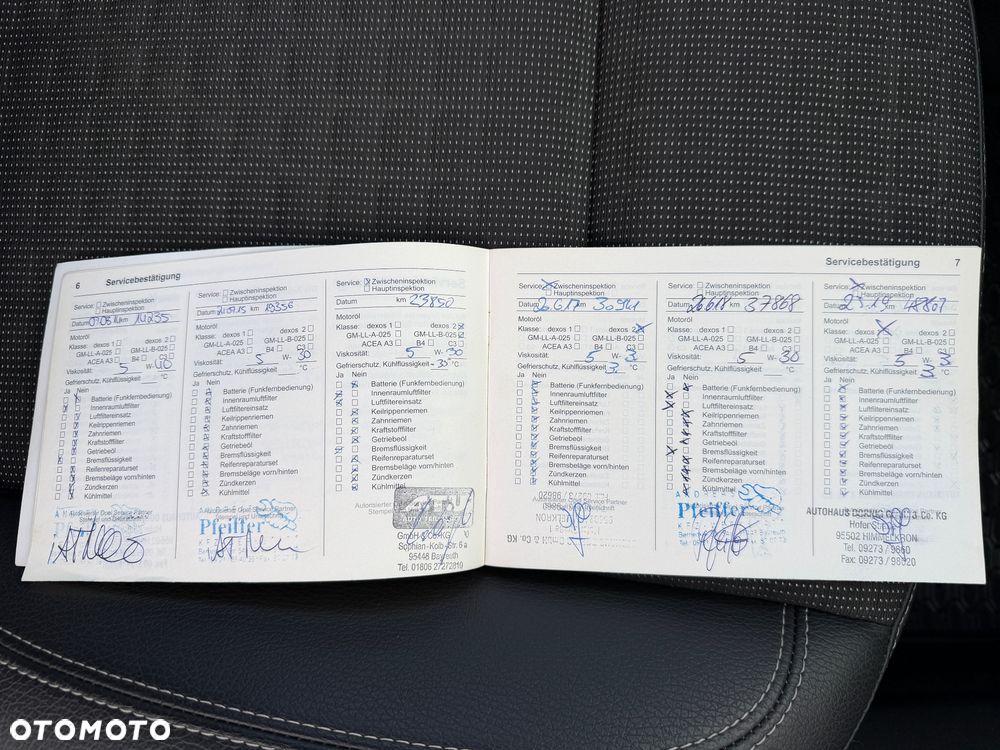 6 Servicebestätigung
Service: Zwischeninspektion
Hauptinspektion
Datum km 14235
Motoröl
Klasse: dexos 1 dexos 2
GM-LL-A-025 GM-LL-B-025
ACEA A3 B4 C3
Viskosität: 5 W- 40
Gefrierschutz, Kühlflüssigkeit °C
Ja Nein
Batterie (Funkfernbedienung)
Innenraumluftfilter
Luftfiltereinsatz
Keilrippenriemen
Zahnriemen
Kraftstofffilter
Getriebeöl
Bremsflüssigkeit
Reifenreparaturset
Bremsbeläge vorn/hinten
Zündkerzen
Kühlmittel
Service: Zwischeninspektion
Hauptinspektion
Datum km 19356
Motoröl
Klasse: dexos 1 dexos 2
GM-LL-A-025 GM-LL-B-025
ACEA A3 B4 C3
Viskosität: 5 W- 30
Gefrierschutz, Kühlflüssigkeit °C
Ja Nein
Batterie (Funkfernbedienung)
Innenraumluftfilter
Luftfiltereinsatz
Keilrippenriemen
Zahnriemen
Kraftstofffilter
Getriebeöl
Bremsflüssigkeit
Reifenreparaturset
Bremsbeläge vorn/hinten
Zündkerzen
Kühlmittel
Pfeiffer
Service: Zwischeninspektion
Hauptinspektion
Datum km 23850
Motoröl
Klasse: dexos 1 dexos 2
GM-LL-A-025 GM-LL-B-025
ACEA A3 B4 C3
Viskosität: 5 W- 30
Gefrierschutz, Kühlflüssigkeit - 30 °C
Ja Nein
Batterie (Funkfernbedienung)
Innenraumluftfilter
Luftfiltereinsatz
Keilrippenriemen
Zahnriemen
Kraftstofffilter
Getriebeöl
Bremsflüssigkeit
Reifenreparaturset
Bremsbeläge vorn/hinten
Zündkerzen
Kühlmittel
ATU
Sophian-Kolb-Str. 6 a
95448 Bayreuth
Tel. 01806 27272810
Servicebestätigung 7
Service: Zwischeninspektion
Hauptinspektion
Datum 26.6.17 km 30941
Motoröl
Klasse: dexos 1 dexos 2
GM-LL-A-025 GM-LL-B-025
ACEA A3 B4 C3
Viskosität: 5 W- 3
Gefrierschutz, Kühlflüssigkeit 3 °C
Ja Nein
Batterie (Funkfernbedienung)
Innenraumluftfilter
Luftfiltereinsatz
Keilrippenriemen
Zahnriemen
Kraftstofffilter
Getriebeöl
Bremsflüssigkeit
Reifenreparaturset
Bremsbeläge vorn/hinten
Zündkerzen
Kühlmittel
Service: Zwischeninspektion
Hauptinspektion
Datum 26618 km 37868
Motoröl
Klasse: dexos 1 dexos 2
GM-LL-A-025 GM-LL-B-025
ACEA A3 B4 C3
Viskosität: 5 W- 30
Gefrierschutz, Kühlflüssigkeit °C
Ja Nein
Batterie (Funkfernbedienung)
Innenraumluftfilter
Luftfiltereinsatz
Keilrippenriemen
Zahnriemen
Kraftstofffilter
Getriebeöl
Bremsflüssigkeit
Reifenreparaturset
Bremsbeläge vorn/hinten
Zündkerzen
Kühlmittel
Pfeiffer
Service: Zwischeninspektion
Hauptinspektion
Datum km
Motoröl
Klasse: dexos 1 dexos 2
GM-LL-A-025 GM-LL-B-025
ACEA A3 B4 C3
Viskosität: 5 W- 3
Gefrierschutz, Kühlflüssigkeit 3 °C
Ja Nein
Batterie (Funkfernbedienung)
Innenraumluftfilter
Luftfiltereinsatz
Keilrippenriemen
Zahnriemen
Kraftstofffilter
Getriebeöl
Bremsflüssigkeit
Reifenreparaturset
Bremsbeläge vorn/hinten
Zündkerzen
Kühlmittel
AUTOHAUS & Co. KG
95502 HIMMELKRON
Tel. 09273 /
Fax: 09273 / 98620
OTOMOTO